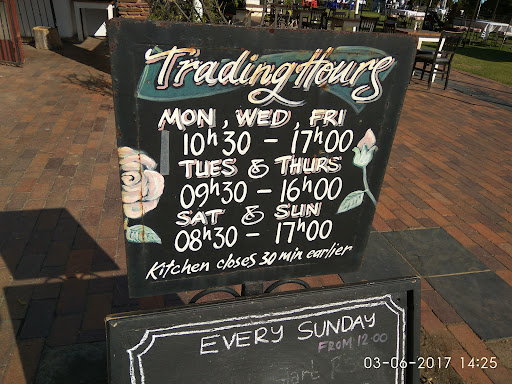 Trading Hours
MON, WED, FRI
10h30 - 17h00
TUES & THURS
09h30 - 16h00
SAT & SUN
08h30 - 17h00
Kitchen closes 30 min earlier
EVERY SUNDAY
FROM 12:00
03-06-2017 14:25